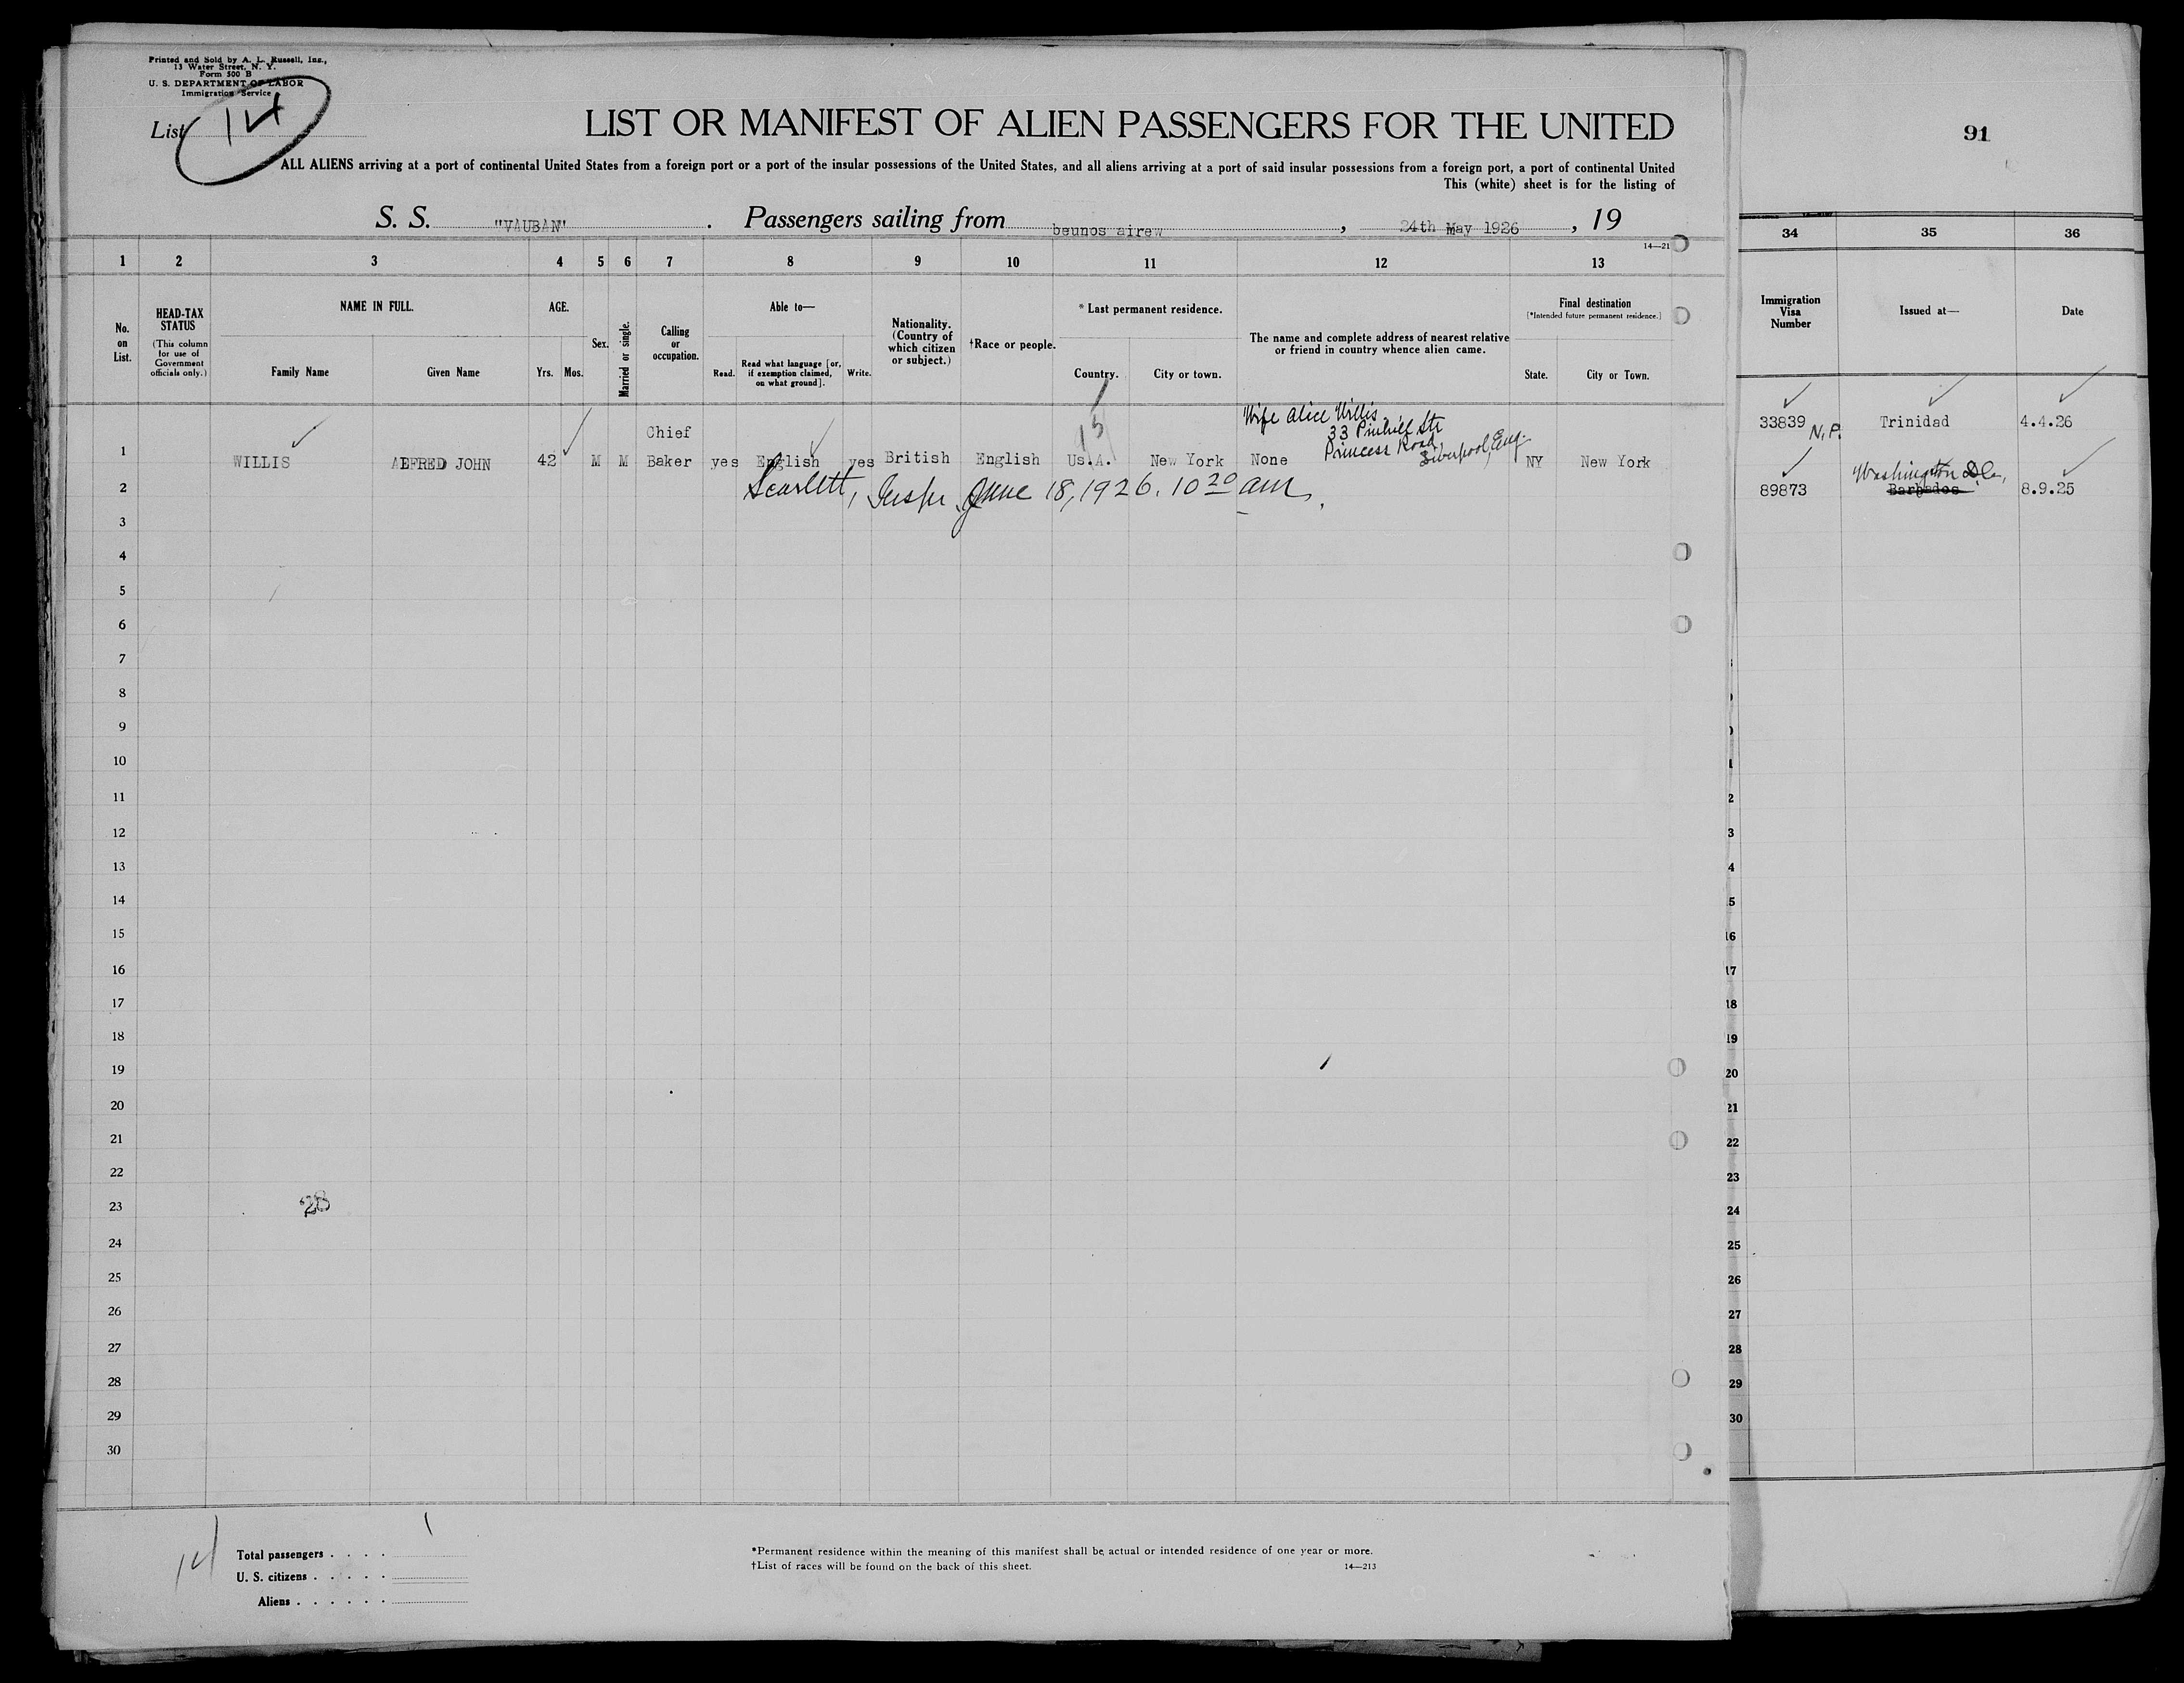 Printed and Sold by A. L. Russell, Inc.,
13 Water Street, N. Y.
Form 500 B
U. S. DEPARTMENT OF LABOR
Immigration Service
List 14
LIST OR MANIFEST OF ALIEN PASSENGERS FOR THE UNITED
ALL ALIENS arriving at a port of continental United States from a foreign port or a port of the insular possessions of the United States, and all aliens arriving at a port of said insular possessions from a foreign port, a port of continental United
This (white) sheet is for the listing of
S. S. "VAUBAN" . Passengers sailing from beunos airew , 24th May 1926 , 19
14—21
1 2 3 4 5 6 7 8 9 10 11 12 13
No. on List.
HEAD-TAX STATUS
(This column for use of Government officials only.)
NAME IN FULL.
Family Name Given Name
AGE.
Yrs. Mos.
Sex.
Married or single.
Calling or occupation.
Able to—
Read. Read what language [or, if exemption claimed, on what ground]. Write.
Nationality. (Country of which citizen or subject.)
†Race or people.
* Last permanent residence.
Country. City or town.
The name and complete address of nearest relative or friend in country whence alien came.
Final destination
[*Intended future permanent residence.]
State. City or Town.
15
Wife Alice Willis
33 Pinhill Str
Princess Road,
Liverpool, Eng.
Chief
1 WILLIS ALFRED JOHN 42 M M Baker yes English yes British English Us.A. New York None NY New York
2 Scarlett, Inspr. June 18, 1926. 10 20 am.
3
4
5
6
7
8
9
10
11
12
13
14
15
16
17
18
19
20
21
22
23
28
24
25
26
27
28
29
30
14
Total passengers . . . . 1
U. S. citizens . . . . .
Aliens . . . . . .
*Permanent residence within the meaning of this manifest shall be actual or intended residence of one year or more.
†List of races will be found on the back of this sheet. 14—213
91
34 35 36
Immigration Visa Number Issued at— Date
33839 N.P. Trinidad 4.4.26
Washington D.C.,
89873 Barbados 8.9.25
1
2
3
4
5
16
17
18
19
20
21
22
23
24
25
26
27
28
29
30